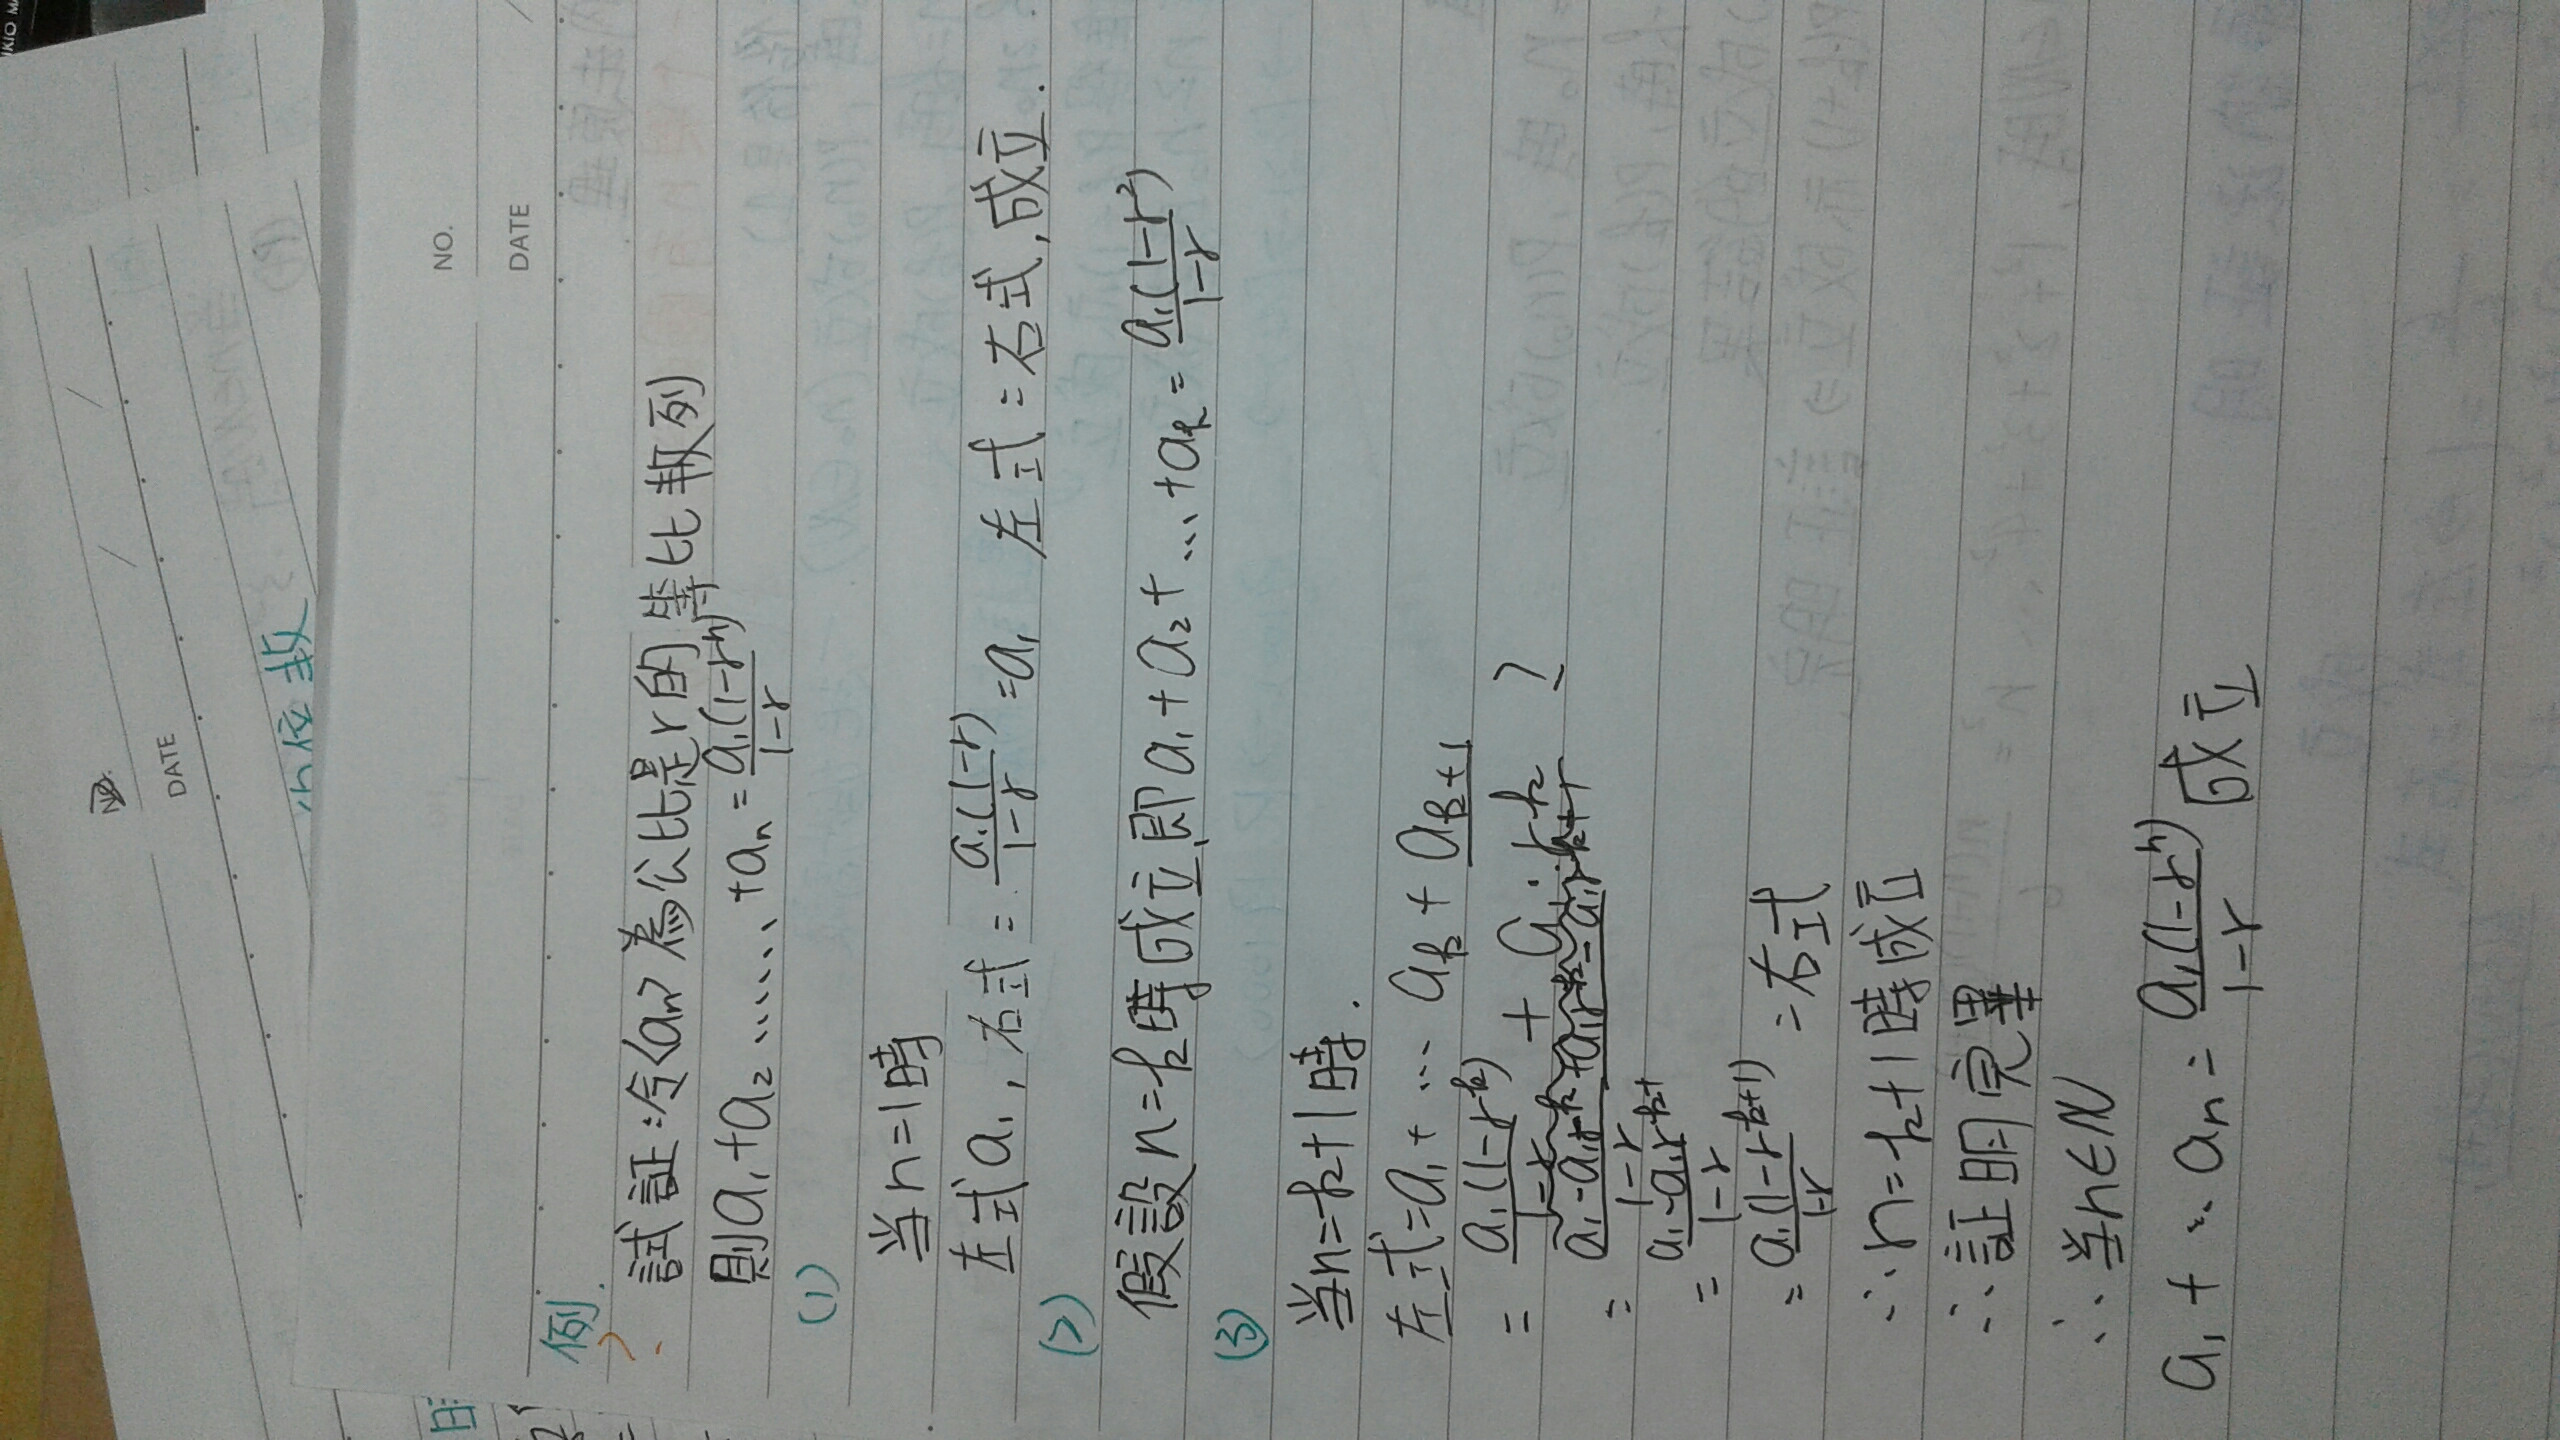 NO.
DATE
例
2.
試証:令<an>為公比是r的等比数列
則a₁+a₂……+aₙ=a₁(1-rⁿ)/1-r
(1)
当n=1時
左式a₁,右式=a₁(1-r)/1-r=a₁ 左式=右式,成立.
(2)
假設n=k時成立即a₁+a₂+…+aₖ=a₁(1-r²)/1-r
(3)
当n=k+1時.
左式=a₁+…aₖ+aₖ₊₁
=a₁(1-rᵏ)/1-r+a₁·rᵏ
=a₁-a₁rᵏ+a₁rᵏ-a₁rᵏ⁺¹/1-r
=a₁-a₁rᵏ⁺¹/1-r
=a₁(1-rᵏ⁺¹)/1-r=右式
∴n=k+1時成立
∴証明完畢
∴当n∈N
a₁+…aₙ=a₁(1-rⁿ)/1-r成立
NO.
DATE
n位数